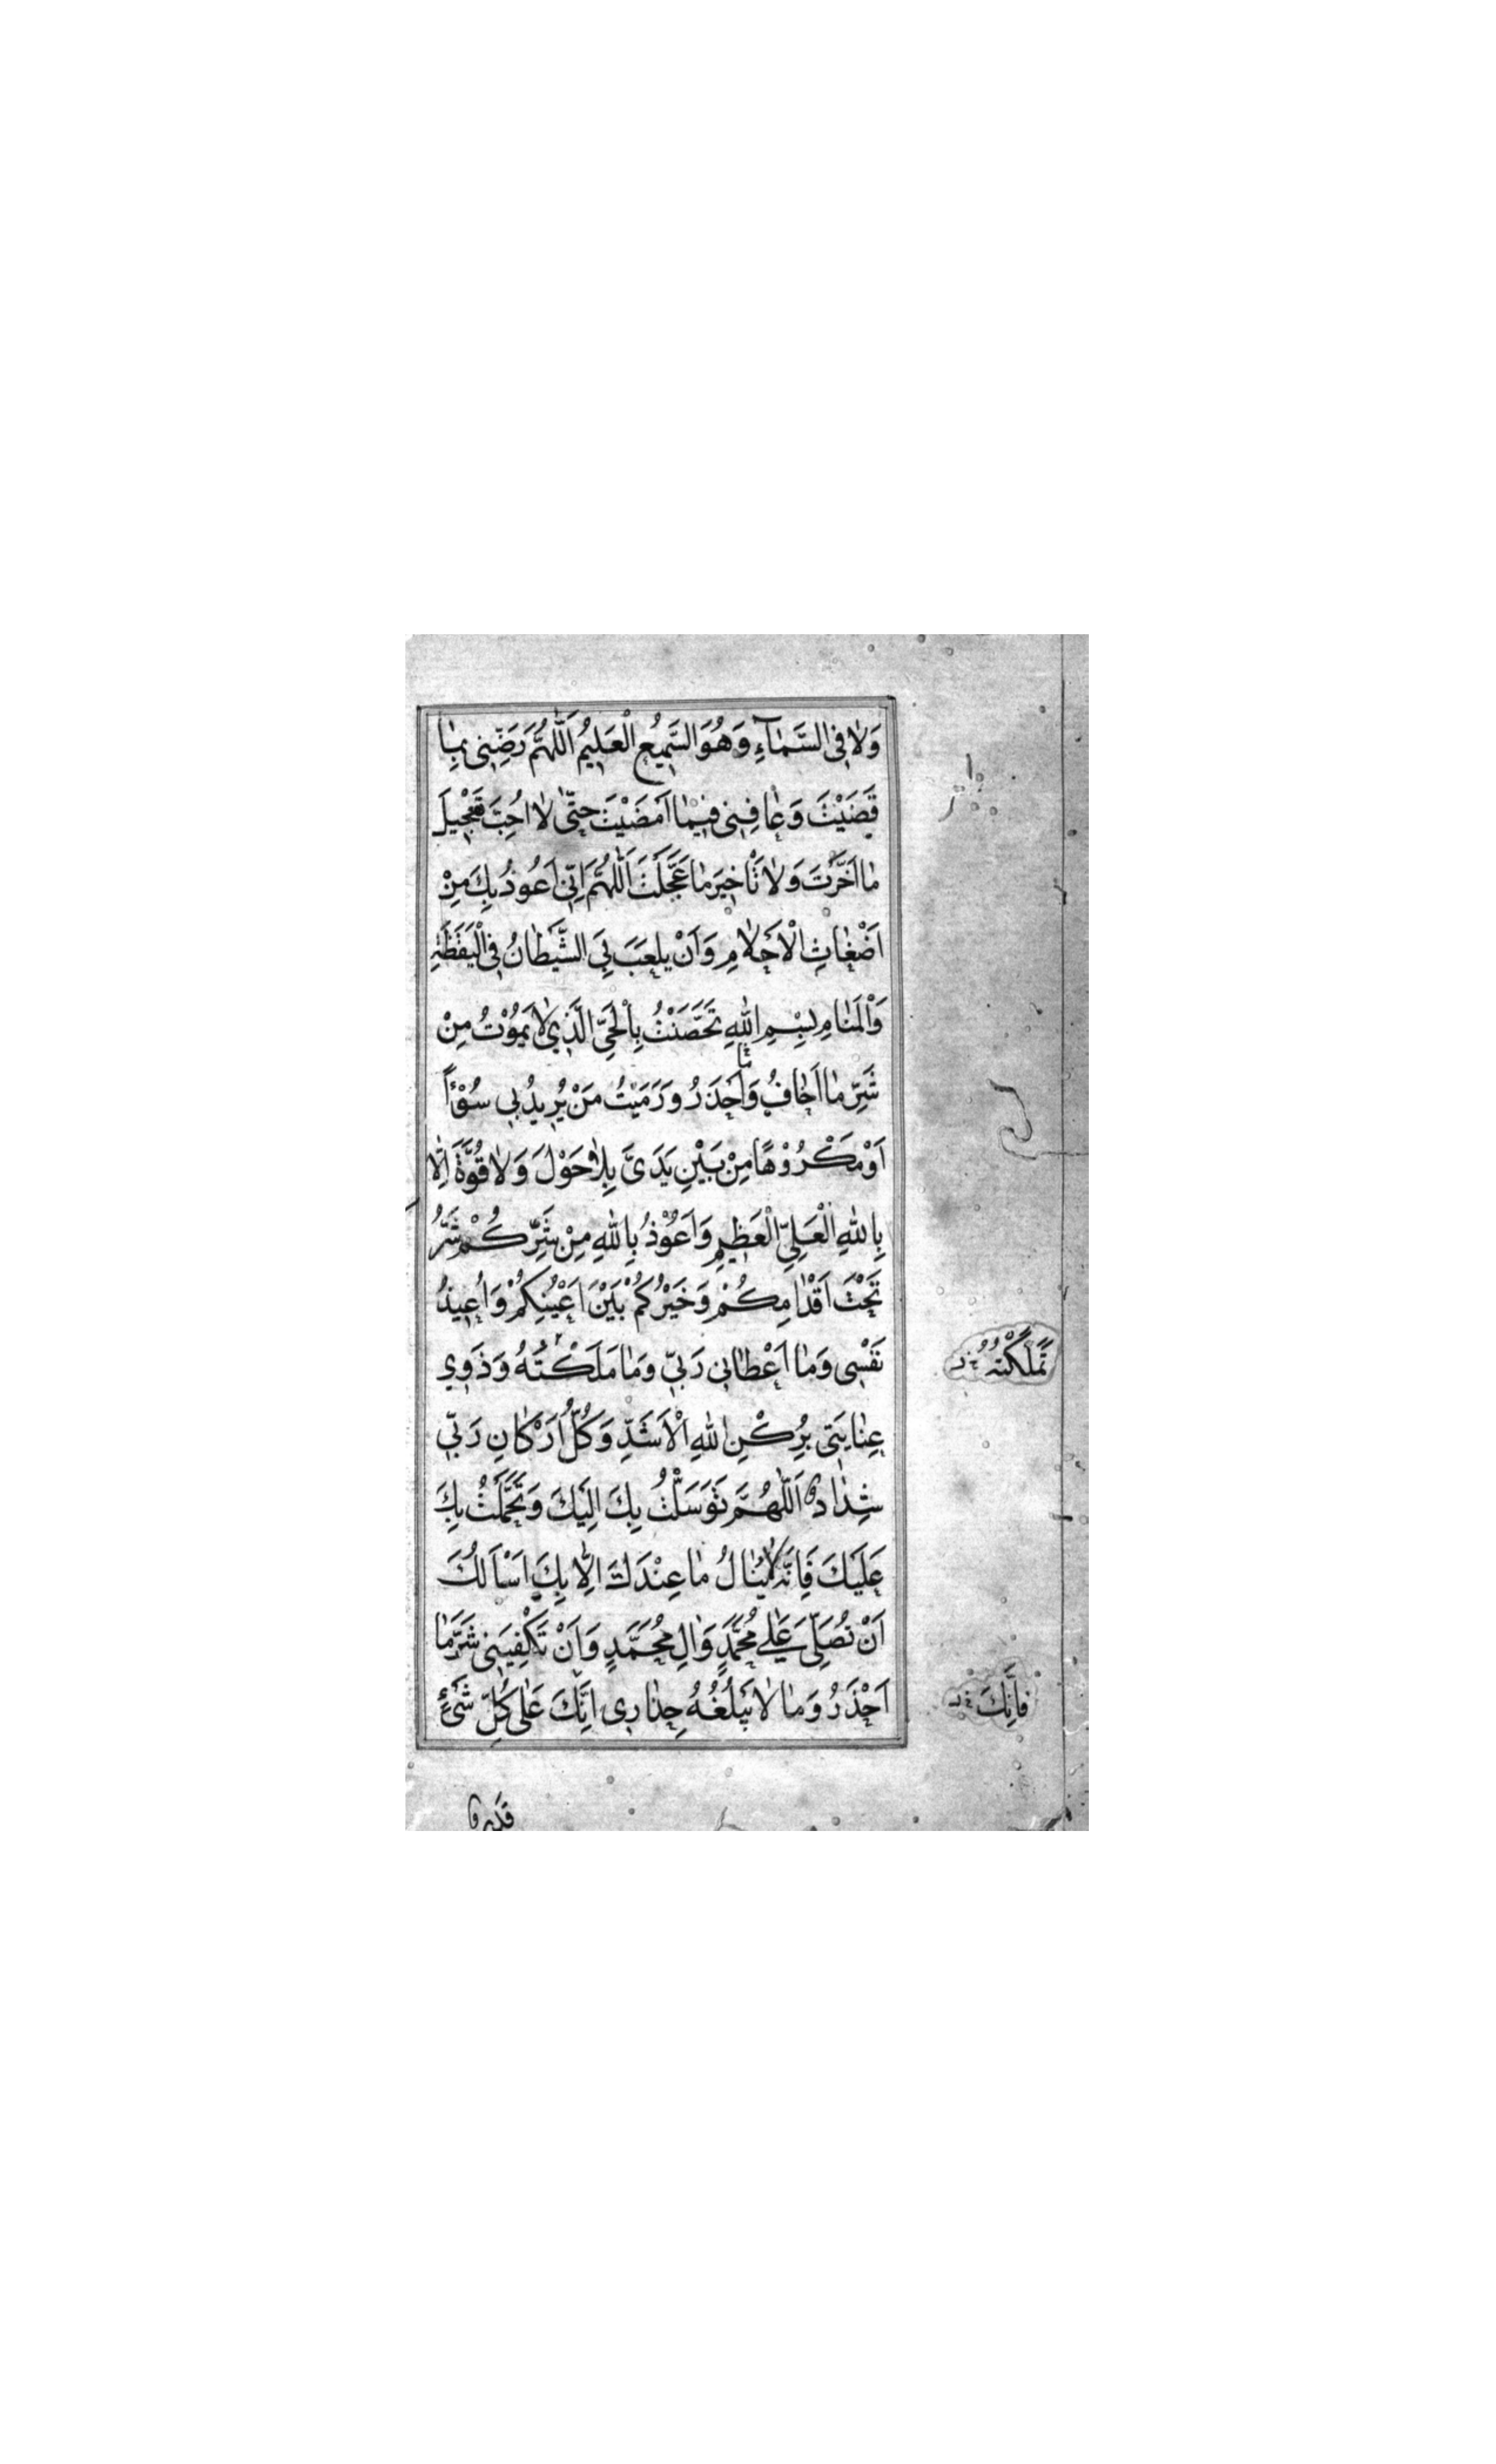 وَلاٰ فِى السَّمٰآءِ وَهُوَ السَّمِيعُ الْعَلِيمُ اَللّٰهُمَّ رَضِّنِى بِمٰا
قَضَيْتَ وَعٰافِنِى فِيْمٰا اَمَضَيْتَ حَتّٰى لاٰ اُحِبَّ تَعْجِيلَ
مٰا اَخَّرْتَ وَلاٰ تَاْخِيرَ مٰا عَجَّلْتَ اَللّٰهُمَّ اِنِّى اَعُوذُ بِكَ مِنْ
اَضْغٰاثِ الْاَحْلاٰمِ وَاَنْ يَلْعَبَ بِىَ الشَّيْطٰانُ فِى الْيَقَظَةِ
وَالْمَنٰامِ بِسْمِ اللّٰهِ تَحَصَّنْتُ بِالْحَىِّ الَّذِى لاٰ يَمُوْتُ مِنْ
شَرِّ مٰا اَخٰافُ وَاَحْذَرُ وَرَمَيْتُ مَنْ يُرِيدُ بِى سُوْءًا
اَوْ مَكْرُوْهًا مِنْ بَيْنِ يَدَىَّ بِلاٰ حَوْلَ وَلاٰ قُوَّةَ اِلّٰا
بِاللّٰهِ الْعَلِىِّ الْعَظِيمِ وَاَعُوْذُ بِاللّٰهِ مِنْ شَرِّكُمْ شَرُّكُمْ
تَحْتَ اَقْدٰامِكُمْ وَخَيْرُكُمْ بَيْنَ اَعْيُنِكُمْ وَاُعِيذُ
نَفْسِى وَمٰا اَعْطٰانِى رَبِّى وَمٰا مَلَكَتْهُ وَذَوِى
تَمْلُكُهُ
عِنٰايَتِى بِرُكْنِ اللّٰهِ الْاَشَدِّ وَكُلُّ اَرْكٰانِ رَبِّى
شِدٰادٌ اَللّٰهُمَّ تَوَسَّلْتُ بِكَ اِلَيْكَ وَتَحَمَّلْتُ بِكَ
عَلَيْكَ فَاِنَّهُ لاٰ يُنٰالُ مٰا عِنْدَكَ اِلّٰا بِكَ اَسْاَلُكَ
اَنْ تُصَلِّىَ عَلٰى مُحَمَّدٍ وَاٰلِ مُحَمَّدٍ وَاَنْ تَكْفِيَنِى شَرَّ مٰا
اَحْذَرُ وَمٰا لاٰ يَبْلُغُهُ حِذٰارِى اِنَّكَ عَلٰى كُلِّ شَىْءٍ
فَاِنَّكَ
قَدِيرٌ